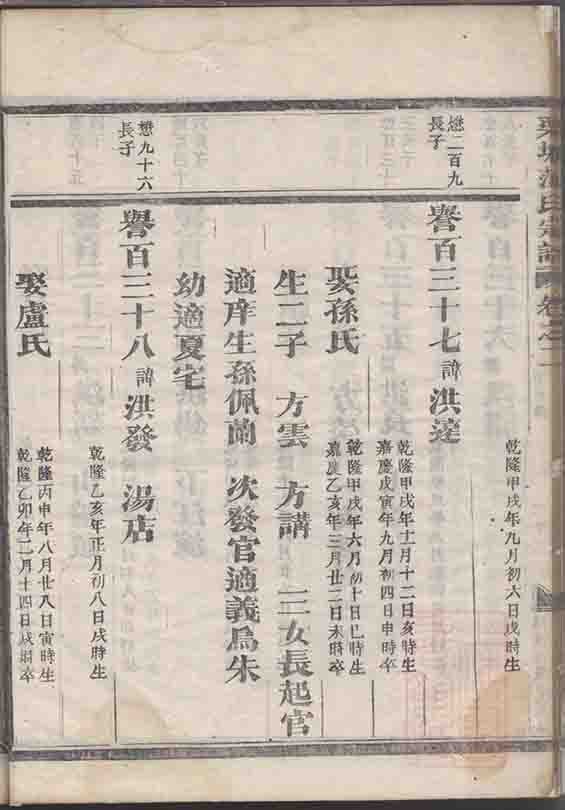 氏宗譜 卷之二
乾隆甲戌年九月初六日戌時生
懋二百九
長子
譽百三十七 諱 洪達
乾隆甲戌年十一月十二日亥時生
嘉慶戊寅年九月初四日申時卒
娶孫氏
乾隆甲戌年六月初十日巳時生
嘉慶乙亥年三月廿二日未時卒
生二子 方雲 方講 三女長起官
適庠生孫佩蘭 次發官適義烏朱
幼適夏宅
懋九十六
長子
譽百三十八 諱 洪發 湯店
乾隆乙亥年正月初八日戌時生
娶盧氏
乾隆丙申年八月廿八日寅時生
乾隆乙卯年二月十四日戌時卒